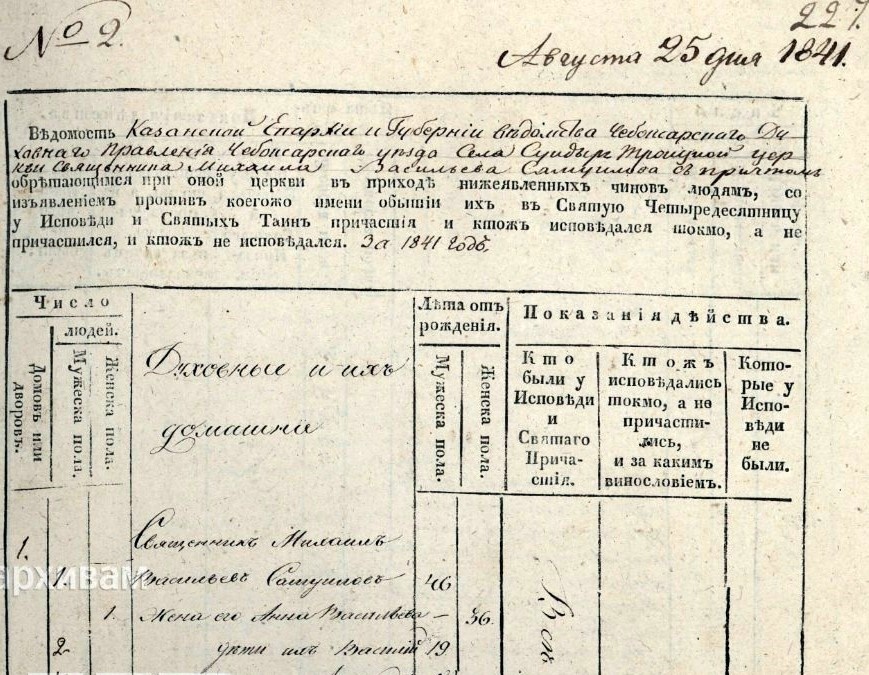 227.
№ 2.
Августа 25 дня 1841.
Вѣдомость Казанской Епархіи и Губерніи вѣдомства Чебоксарскаго Ду-
ховнаго Правленія Чебоксарскаго уѣзда Села Сундырь Троицкой цер
кви Священника Михаила Васильева Самуилова съ причтомъ
обрѣтающимся при оной церкви въ приходѣ нижеявленныхъ чиновъ людямъ, со
изъявленіемъ противъ коегожо имени обышіи ихъ въ Святую Четыредесятницу
у Исповѣди и Святыхъ Таинъ причастія и ктожъ исповѣдался токмо, а не
причастился, и ктожъ не исповѣдался. За 1841 годъ.
Число
людей.
Домовъ или дворовъ.
Мужеска пола.
Женска пола.
Духовные и ихъ
домашніе
Лѣта отъ
рожденія.
Мужеска пола.
Женска пола.
Показанія дѣйства.
Кто
были у
Исповѣди
и
Святаго
Прича-
стія.
Ктожъ
исповѣдались
токмо, а не
причасти-
лись,
и за какимъ
винословіемъ.
Кото-
рые у
Испо-
вѣди
не
были.
1.
Священникъ Михаилъ
1. Васильевъ Самуиловъ 46
1. Жена его Анна Васильева 36.
2 дѣти ихъ Василій 19
Всѣ
архивам